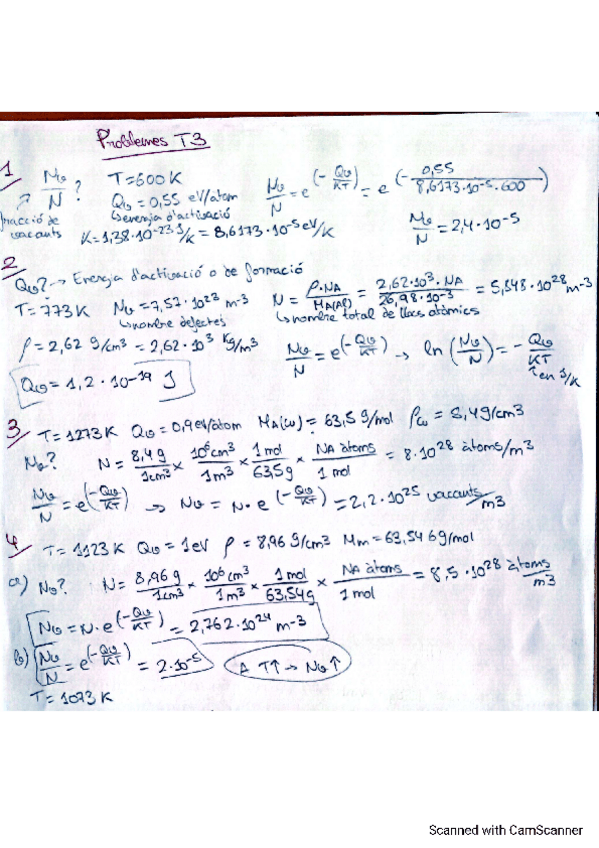 Problemes T3
1 Nv/N? T=600K Nv/N = e^(-Qv/KT) = e^(-0,55/8,6173·10^-5·600)
Qv = 0,55 eV/atom
↳energia d'activació
fracció de vacants K=1,38·10^-23 J/K = 8,6173·10^-5 eV/K Nv/N = 2,4·10^-5
2
Qv? → Energia d'activació o de formació
T= 773K Nv = 7,57·10^23 m-3 N = ρ·NA/MA(Al) = 2,62·10^3·NA/26,98·10^-3 = 5,848·10^28 m-3
↳nombre defectes ↳nombre total de llocs atòmics
ρ = 2,62 g/cm3 = 2,62·10^3 Kg/m3 Nv/N = e^(-Qv/KT) → ln(Nv/N) = -Qv/KT
Qv = 1,2·10^-19 J ↑en J/K
3 T= 1273K Qv = 0,9eV/atom MA(Cu) = 63,5 g/mol ρCu = 8,4g/cm3
Nv? N = 8,4g/1cm3 × 10^6cm3/1m3 × 1mol/63,5g × NA àtoms/1mol = 8·10^28 àtoms/m3
Nv/N = e^(-Qv/KT) → Nv = N·e^(-Qv/KT) = 2,2·10^25 vacants/m3
4 T= 1123K Qv = 1eV ρ = 8,96 g/cm3 Mm = 63,54 g/mol
a) Nv? N = 8,96g/1cm3 × 10^6cm3/1m3 × 1mol/63,54g × NA àtoms/1mol = 8,5·10^28 àtoms/m3
Nv = N·e^(-Qv/KT) = 2,762·10^24 m-3
b) Nv/N = e^(-Qv/KT) = 2·10^-5 A T↑ → Nv↑
T= 1073K
Scanned with CamScanner